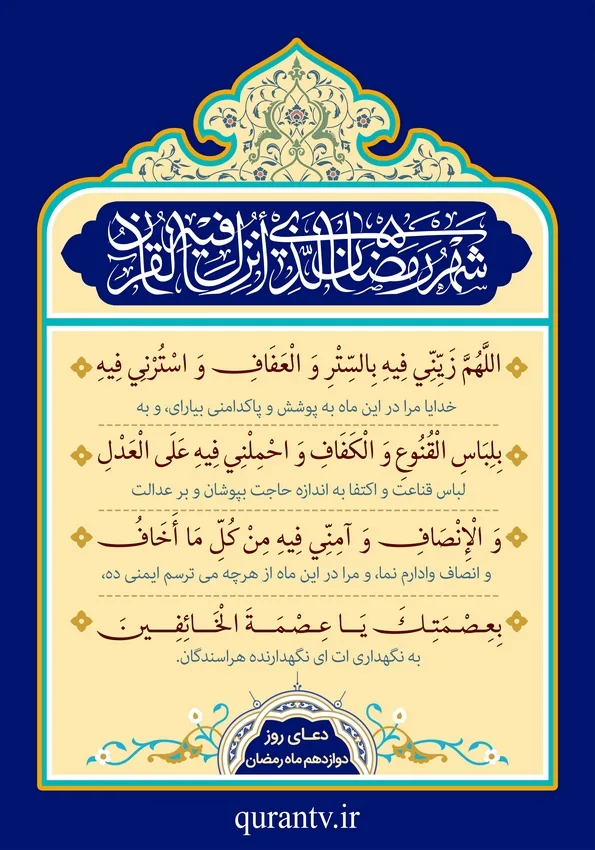 شَهْرُ رَمَضَانَ الَّذِي أُنْزِلَ فِيهِ الْقُرْآنُ
اللَّهُمَّ زَيِّنِّي فِيهِ بِالسِّتْرِ وَ الْعَفَافِ وَ اسْتُرْنِي فِيهِ
خدایا مرا در این ماه به پوشش و پاکدامنی بیارای، و به
بِلِبَاسِ الْقُنُوعِ وَ الْكَفَافِ وَ احْمِلْنِي فِيهِ عَلَى الْعَدْلِ
لباس قناعت و اکتفا به اندازه حاجت بپوشان و بر عدالت
وَ الْإِنْصَافِ وَ آمِنِّي فِيهِ مِنْ كُلِّ مَا أَخَافُ
و انصاف وادارم نما، و مرا در این ماه از هرچه می ترسم ایمنی ده،
بِعِصْمَتِكَ يَا عِصْمَةَ الْخَائِفِينَ
به نگهداری ات ای نگهدارنده هراسندگان.
دعای روز
دوازدهم ماه رمضان
qurantv.ir